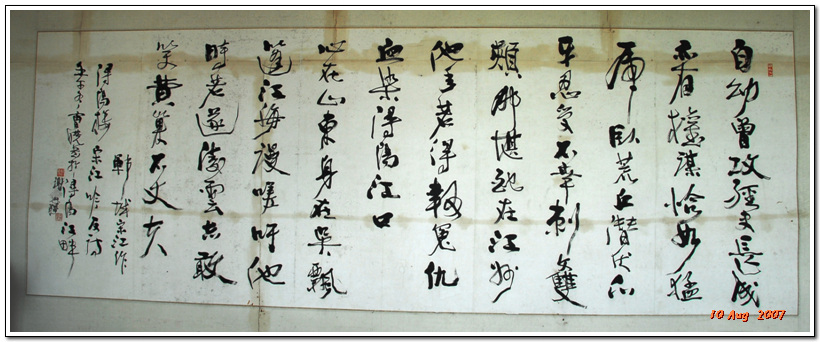 自幼曾攻經史長成
亦有權謀恰如猛
虎臥荒丘潛伏爪
牙忍受不幸刺雙
頰那堪配在江州
他年若得報冤仇
血染潯陽江口
心在山東身在吳飄
蓬江海謾嗟吁他
時若遂凌雲志敢
笑黃巢不丈夫
鄆城宋江作
潯陽樓宋江吟反詩
於潯陽江畔
10 Aug 2007